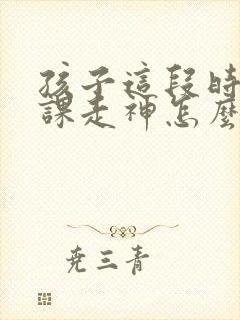 孩子這段時
課走神怎麼
堯三青